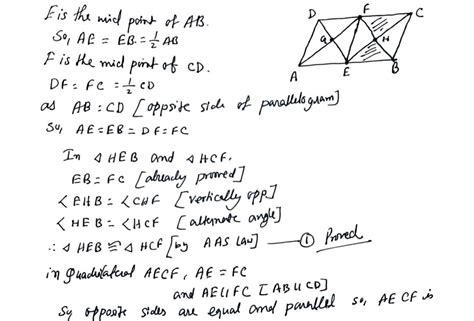 E is the mid point of AB.
So, AE = EB = 1/2 AB
F is the mid point of CD.
DF = FC = 1/2 CD
as AB = CD [opposite side of parallelogram]
So, AE = EB = DF = FC
D F C
G H
A E B
In △ HEB and △ HCF,
EB = FC [already proved]
∠EHB = ∠CHF [vertically opp]
∠HEB = ∠HCF [alternate angle]
∴ △ HEB ≅ △ HCF [by AAS LAW] — ① Proved
in quadrilateral AECF, AE = FC
and AE||FC [AB||CD]
Sy opposite sides are equal and parallel so, AECF is